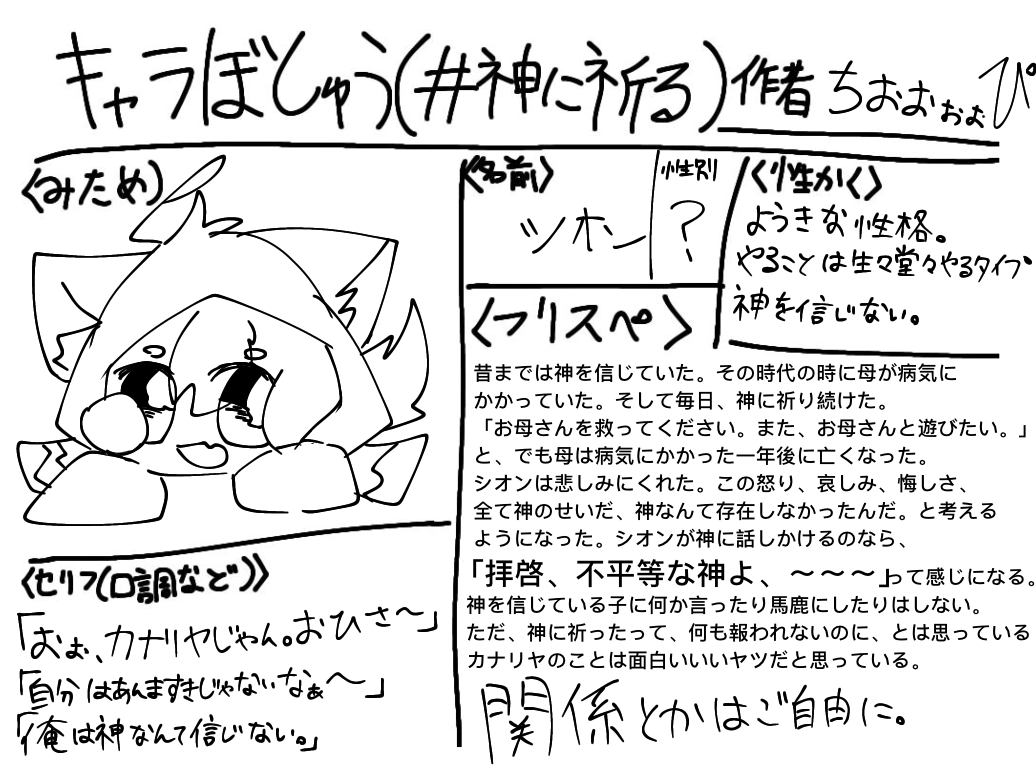 キャラぼしゅう(#神に祈る)作者 ちおおぉぉぴ
〈みため〉
〈名前〉
ツホン
性別
?
〈性かく〉
ようきな性格。
やることは生々堂々やるタイプ。
神を信じない。
〈フリスペ〉
昔までは神を信じていた。その時代の時に母が病気に
かかっていた。そして毎日、神に祈り続けた。
「お母さんを救ってください。また、お母さんと遊びたい。」
と、でも母は病気にかかった一年後に亡くなった。
シオンは悲しみにくれた。この怒り、哀しみ、悔しさ、
全て神のせいだ、神なんて存在しなかったんだ。と考える
ようになった。シオンが神に話しかけるのなら、
「拝啓、不平等な神よ、～～～」って感じになる。
神を信じている子に何か言ったり馬鹿にしたりはしない。
ただ、神に祈ったって、何も報われないのに、とは思っている
カナリヤのことは面白いいいヤツだと思っている。
関係とかはご自由に。
〈セリフ(口調など)〉
「おぉ、カナリヤじゃん。おひさ〜」
「自分はあんますきじゃないなぁ〜」
「俺は神なんて信じない。」